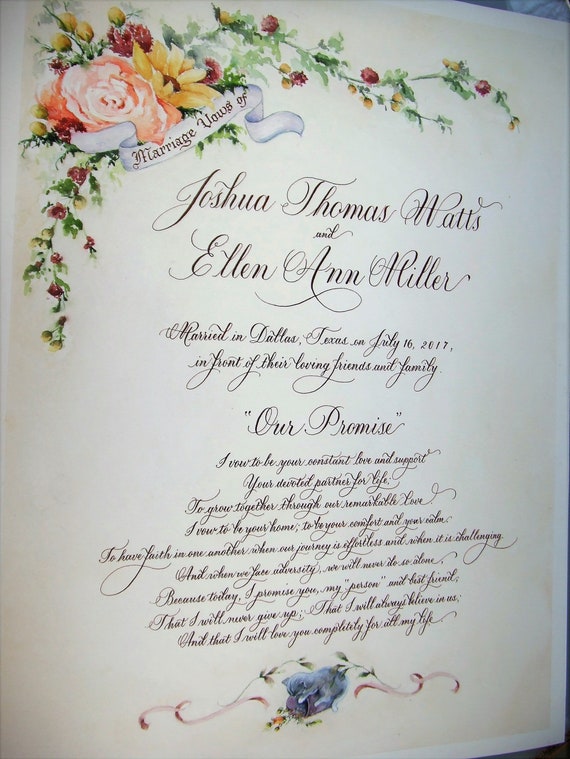 Marriage Vows of
Joshua Thomas Watts
and
Ellen Ann Miller
Married in Dallas, Texas on July 16, 2017,
in front of their loving friends and family.
"Our Promise"
I vow to be your constant love and support
Your devoted partner for life;
To grow together through our remarkable love.
I vow to be your home; to be your comfort and your calm.
To have faith in one another when our journey is effortless and when it is challenging.
And when we face adversity, we will never do so alone,
Because today, I promise you, my "person" and best friend;
That I will never give up; That I will always believe in us;
And that I will love you completely for all my life.